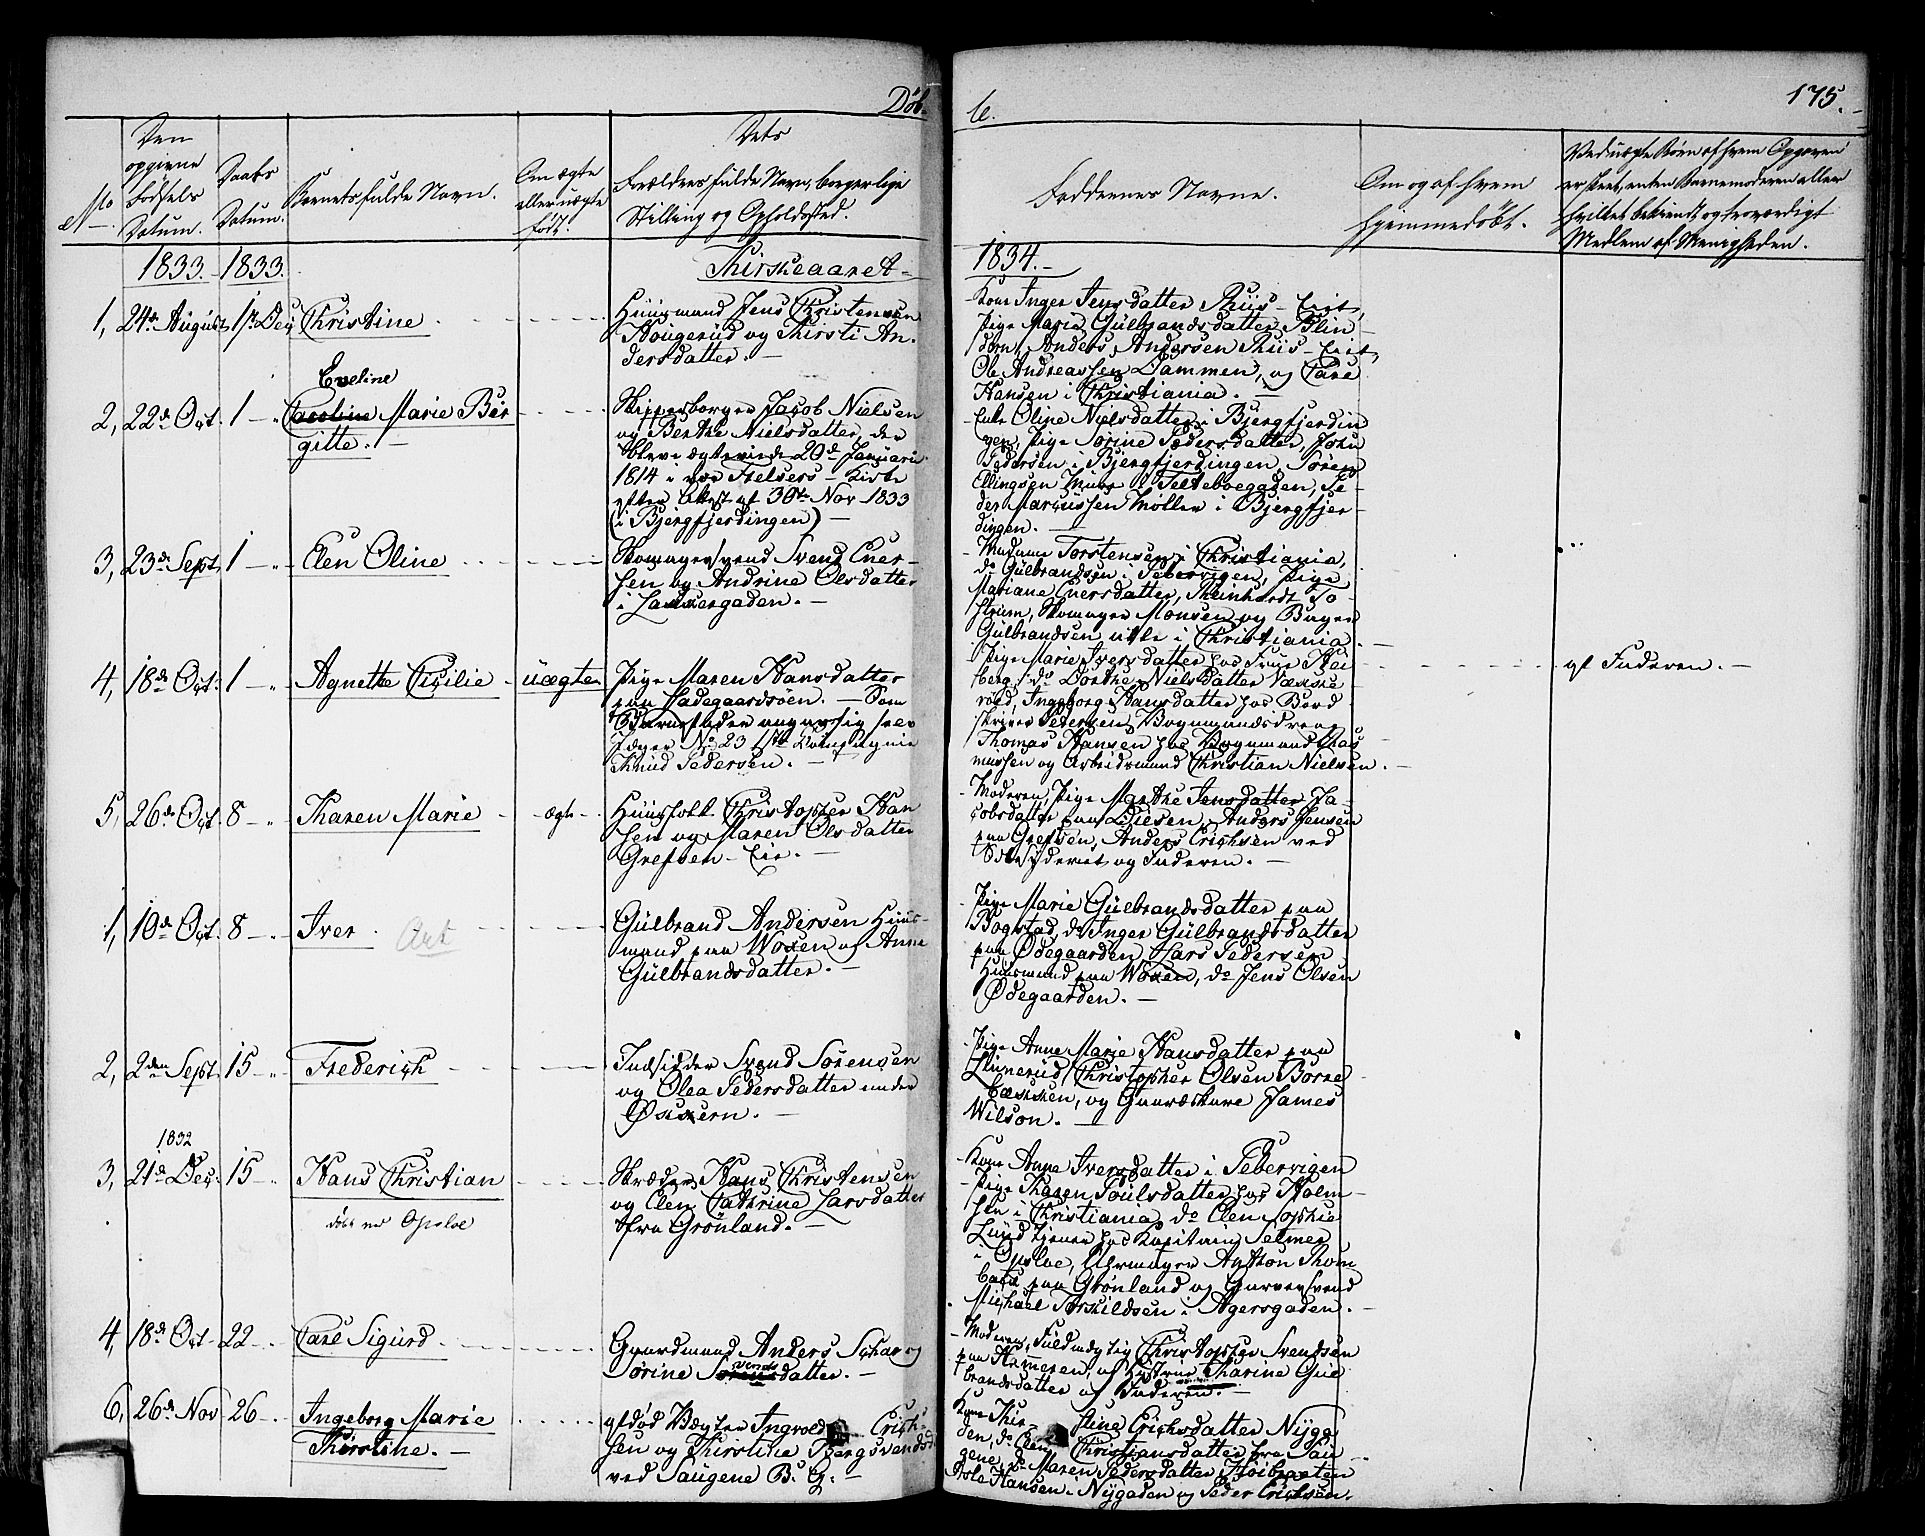 Døb-
te.
175.
No
Den
opgivne
Fødsels
Datum.
Daabs
Datum.
Barnets fulde Navn.
Om ægte
eller uægte
født.
Dets
Forældres fulde Navn, borgerlige
Stilling og Opholdssted.
Faddernes Navne.
Om og af hvem
hjemmedøbt.
Ved uægte Børn af hvem Opgaven
er skeet, enten Barnemoderen eller
hvilket bekiendt og troværdigt
Medlem af Menigheden.
1833. 1833.
Kirkeaaret
1834.
1, 24de August 1ste Dec Christine
Huusmand Jens Christensen
Hougerud og Kirsti An-
dersdatter.
Kone Inger Jensdatter Riis-Eie,
Pige Marie Gulbrandsdatter Blin-
dern, Anders Andersen Riis-Eie,
Ole Andreassen Dammen, og Carl
Hansen i Christiania.
Eveline
2, 22de Oct. 1 Caroline Marie Bir
gitte.
Skipperborger Jacob Nielsen
og Berthe Nielsdatter, der
bleve ægteviede 20de Januari
1814 i vor Frelsers-Kirke
efter Attest af 30te Nov 1833
(i Bjergfjerdingen)
Enke Oline Nielsdatter i Bjergfjerdin
gen, Pige Sørine Pedersdatter, John
Pedersen i Bjergfjerdingen, Søren
Ellingsen Muus i Telteboegaden, Pe-
der Marcussen Møller i Bjergfjer-
dingen.
3, 23de Sept. 1 Elen Oline
Skomagersvend Svend Ever-
sen og Andrine Olsdatter
i Lakkegaden.
Madame Torstensen i Christiania,
do Gulbrandsen i Pebervigen, Pige
Mariane Eversdatter, Reinhardt To-
strum, Skomager Monsen og Bager
Gulbrandsen alle i Christiania.
4, 18de Oct. 1 Agnethe Cicilie uægte
Pige Maren Hansdatter
paa Ladegaardsøen. Som
Barnefader angav sig selv
Jæger No 23 1ste Compagnie
Knud Pedersen.
Pige Marie Iversdatter hos Frue Hei
berg, do Dorthe Nielsdatter Vække
røed, Ingeborg Hansdatter hos Bord-
skriver Pedersen, Bogmandsdreng
Thomas Hansen hos Bogmand Ras
mussen og Arbeidsmand Christian Nielsen.
af Faderen.
5, 26de Oct. 8 Karen Marie ægte
Huusfolk Christopher Han
sen og Maren Olsdatter
Grefsen-Eie.
Moderen, Pige Marthe Jensdatter Ja-
cobsdatter paa Disen, Anders Jensen
paa Grefsen, Anders Erichsen ved
Sæbesyderiet og Faderen.
1, 10de Oct. 8 Iver. Art
Gulbrand Andersen Huus-
mand paa Woxen og Anne
Gulbrandsdatter.
Pige Marie Gulbrandsdatter paa
Bogstad, do Inger Gulbrandsdatter
paa Ødegaarden, Lars Pedersen
Huusmand paa Woxen, do Jens Olsen
Ødegaarden.
2, 2den Sept. 15 Frederich
Indsidder Svend Sørensen
og Olea Pedersdatter under
Økern.
Pige Anne Marie Hansdatter paa
Linnerud, Christopher Olsen Borre
bækken, og Gaardskarl James
Wilson.
1832
3, 21de Dec. 15 Hans Christian
døbt ved Opsloe
Skræder Hans Christensen
og Elen Cathrine Larsdatter
fra Grønland.
Kone Anne Iversdatter i Pebervigen
Pige Karen Poulsdatter hos Holm-
sen i Christiania, do Elen Sophie
Lund tjener hos Kapitain Selmer
i Opsloe, Uhrmager Anthon Thom
bach paa Grønland og Garversvend
Michael Torkildsen i Agersgaden.
4, 18de Oct 22 Carl Sigurd
Gaardmand Anders Schau og
Sørine Sørensdatter.
Moderen, Fuldmægtig Christopher Svendsen
paa Hammeren, og Hustrue Karine Gul
brandsdatter og Faderen.
6, 26de Nov 26 Ingeborg Marie
Kirstine.
afdød Vægter Ingvold Erich-
sen og Kirstine Bergsvendsd
ved Saugene B. G.
Kone Kirstine Erichsdatter Nyga-
den, do Elene Christiansdatter fra Sau-
gene, do Maren Pedersdatter Høibraaten
Asle Hansen Nygaden og Peder Erichsen.